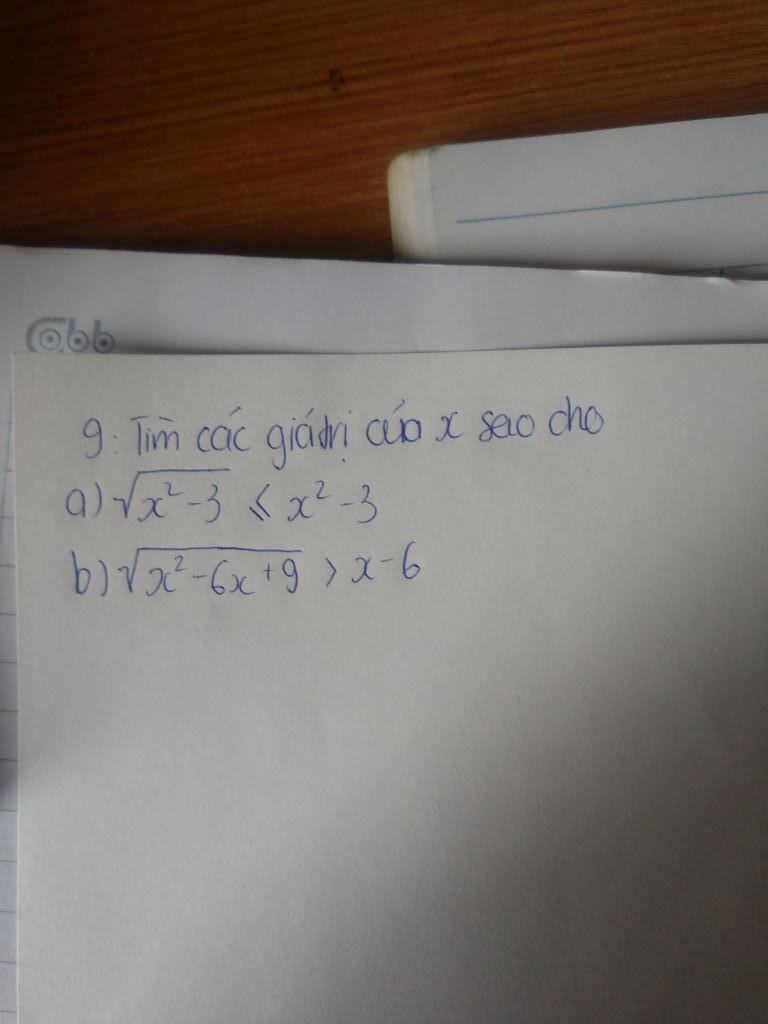 Cabb
9: Tìm các giá trị của x sao cho
a) √(x² - 3) ⩽ x² - 3
b) √(x² - 6x + 9) > x - 6